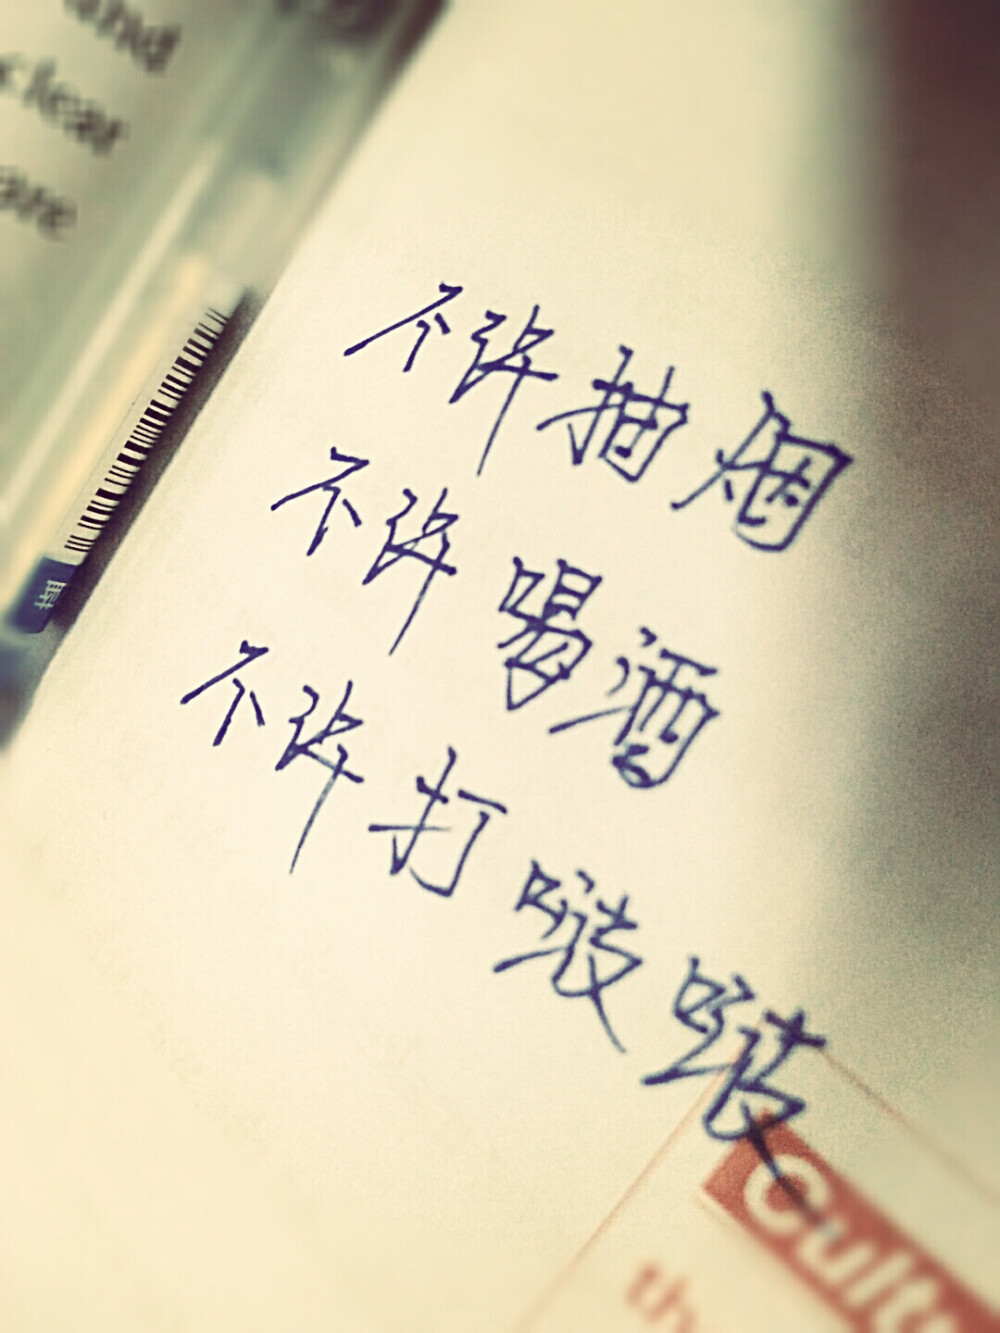 and
clear
are
不许抽烟
不许喝酒
不许打啵啵